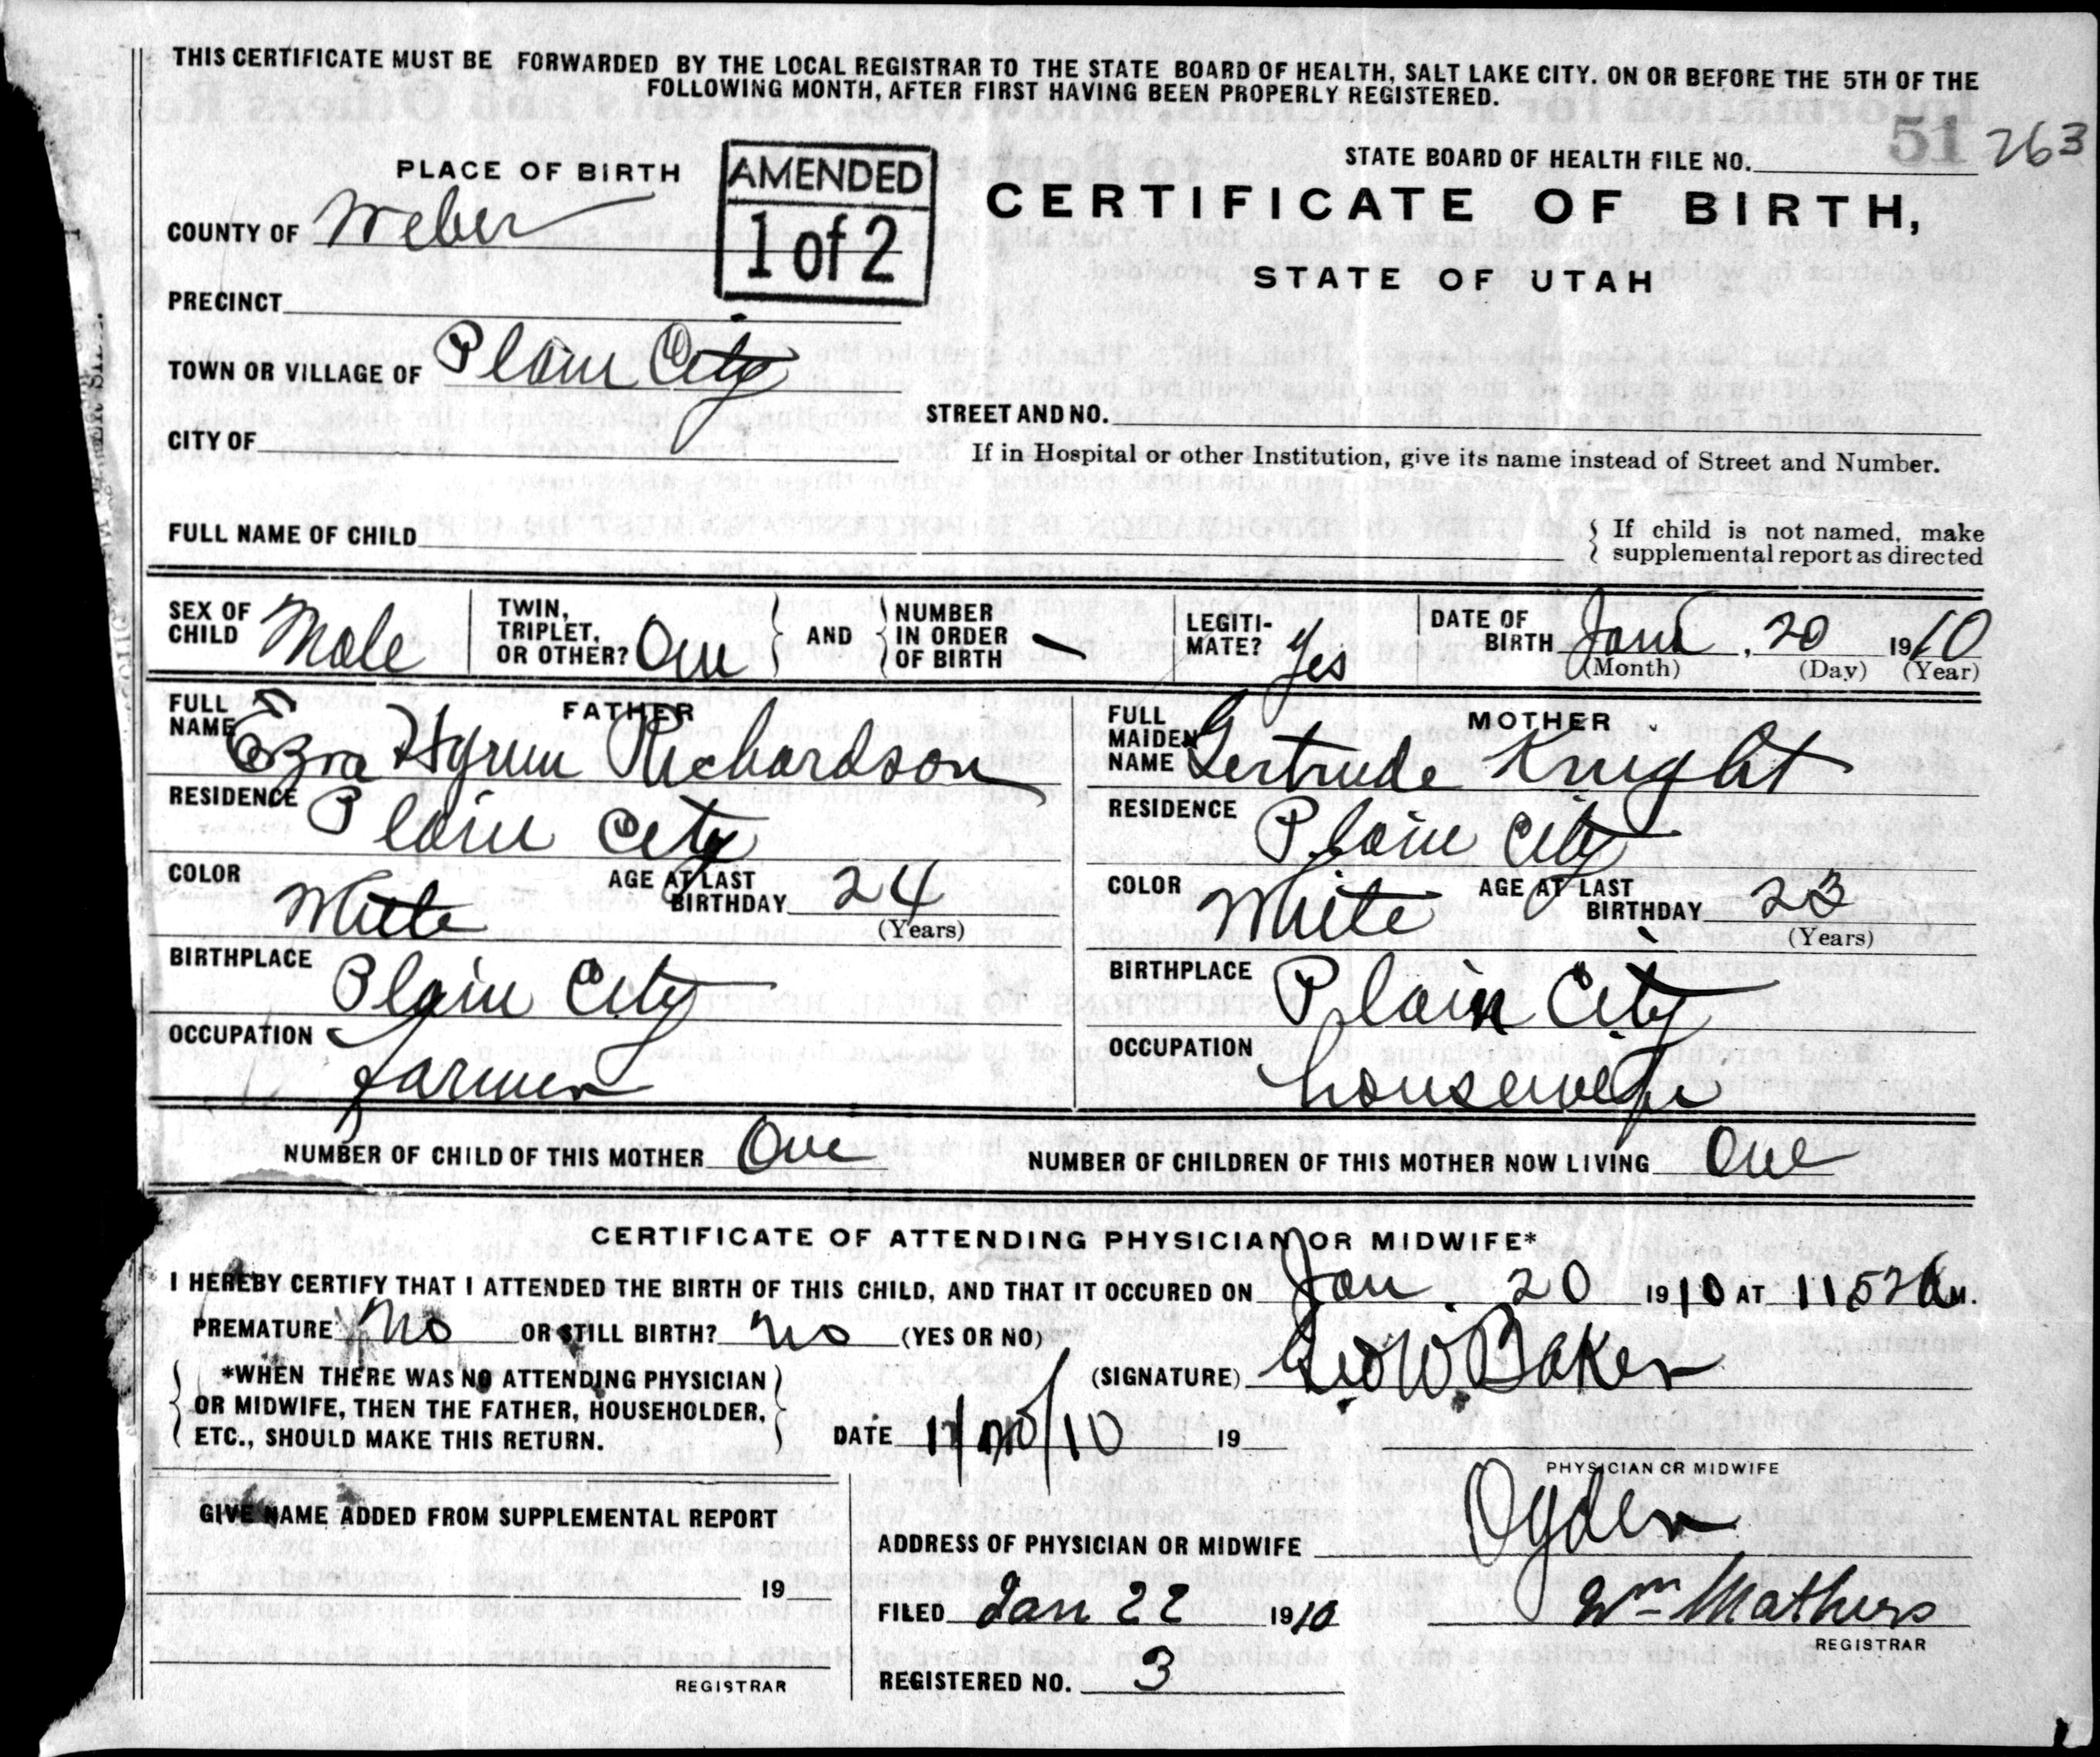 THIS CERTIFICATE MUST BE FORWARDED BY THE LOCAL REGISTRAR TO THE STATE BOARD OF HEALTH, SALT LAKE CITY. ON OR BEFORE THE 5TH OF THE
FOLLOWING MONTH, AFTER FIRST HAVING BEEN PROPERLY REGISTERED.
STATE BOARD OF HEALTH FILE NO. 51 263
PLACE OF BIRTH
AMENDED
1 of 2
CERTIFICATE OF BIRTH,
STATE OF UTAH
COUNTY OF Weber
PRECINCT
TOWN OR VILLAGE OF Plain City
STREET AND NO.
CITY OF
If in Hospital or other Institution, give its name instead of Street and Number.
FULL NAME OF CHILD
{ If child is not named, make
supplemental report as directed
SEX OF CHILD Male
TWIN, TRIPLET, OR OTHER? One
AND
NUMBER IN ORDER OF BIRTH –
LEGITI-MATE? Yes
DATE OF BIRTH Jan, 20 1910
(Month) (Day) (Year)
FATHER
FULL NAME Ezra Hyrum Richardson
RESIDENCE Plain City
COLOR White AGE AT LAST BIRTHDAY 24
(Years)
BIRTHPLACE Plain City
OCCUPATION farmer
MOTHER
FULL MAIDEN NAME Gertrude Knight
RESIDENCE Plain City
COLOR White AGE AT LAST BIRTHDAY 23
(Years)
BIRTHPLACE Plain City
OCCUPATION housewife
NUMBER OF CHILD OF THIS MOTHER One
NUMBER OF CHILDREN OF THIS MOTHER NOW LIVING One
CERTIFICATE OF ATTENDING PHYSICIAN OR MIDWIFE*
I HEREBY CERTIFY THAT I ATTENDED THE BIRTH OF THIS CHILD, AND THAT IT OCCURED ON Jan 20 1910 AT 1152 a M.
PREMATURE no OR STILL BIRTH? no (YES OR NO)
{ *WHEN THERE WAS NO ATTENDING PHYSICIAN
OR MIDWIFE, THEN THE FATHER, HOUSEHOLDER,
ETC., SHOULD MAKE THIS RETURN. }
(SIGNATURE) Geo W Baker
DATE 1/20/10 19
PHYSICIAN OR MIDWIFE
GIVE NAME ADDED FROM SUPPLEMENTAL REPORT
19
REGISTRAR
ADDRESS OF PHYSICIAN OR MIDWIFE Ogden
FILED Jan 22 1910
Wm Mathers
REGISTRAR
REGISTERED NO. 3